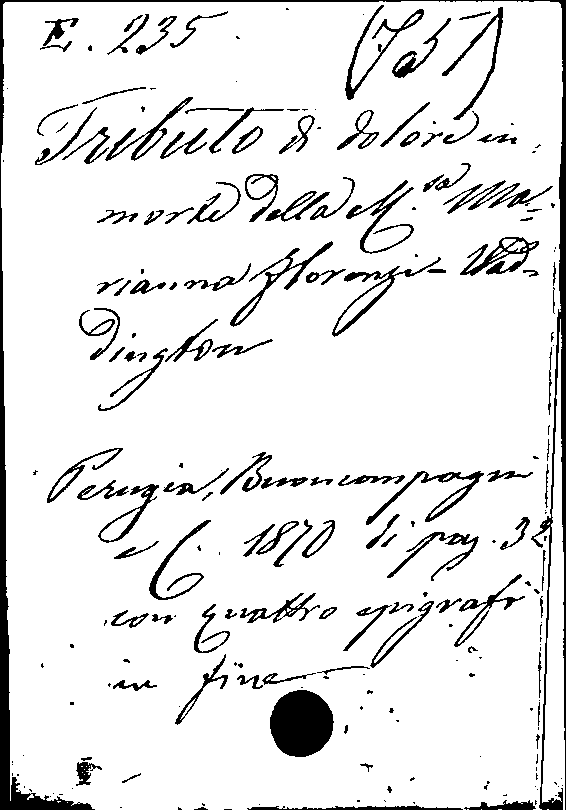 E. 235 (7a51)
Tributo di dolore in
morte della M.sa Ma=
rianna Florenzi-Wad-
dington
Perugia, Buoncompagni
e C. 1870 di pag. 32
con quattro epigrafi
in fine